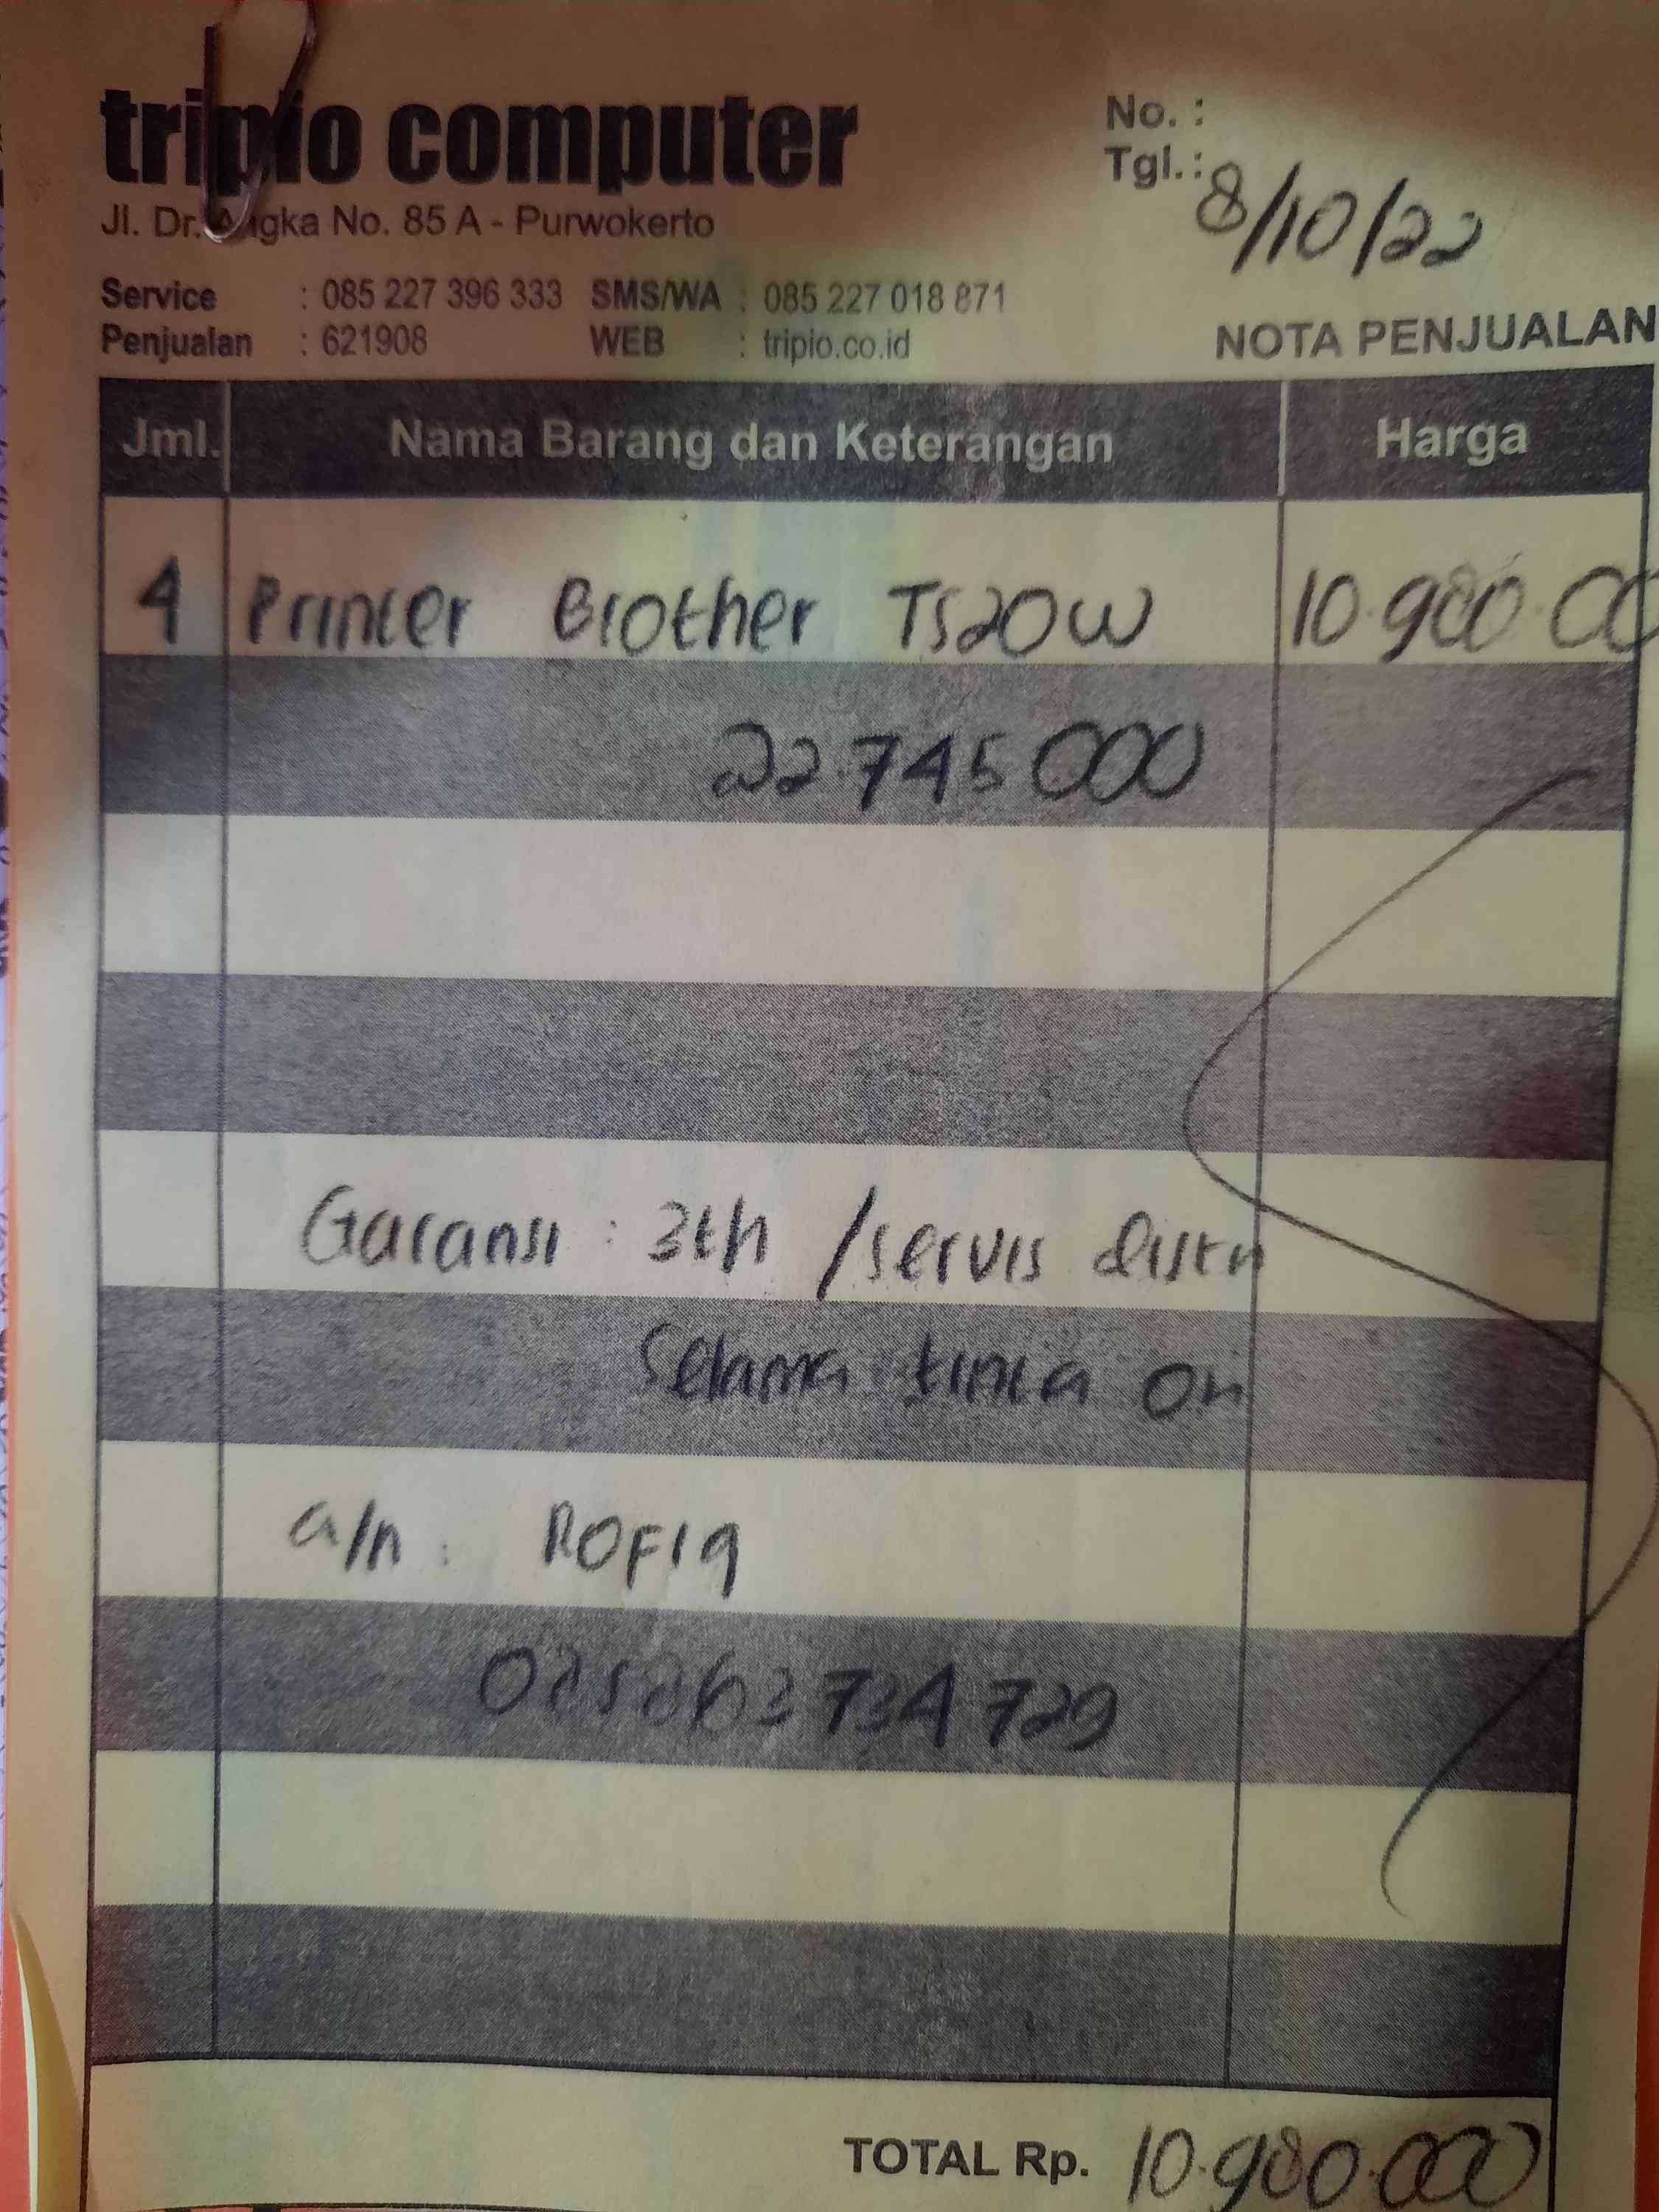 tripio computer
Jl. Dr. Angka No. 85 A - Purwokerto
No. :
Tgl. : 8/10/22
Service : 085 227 396 333 SMS/WA : 085 227 018 871
Penjualan : 621908 WEB : tripio.co.id
NOTA PENJUALAN
Jml. Nama Barang dan Keterangan Harga
4 Printer Brother T520W 10.980.00
22.745 000
Garansi : 3th / servis distri
Selama tinta ori
a/n : ROFIQ
085863734729
TOTAL Rp. 10.980.000